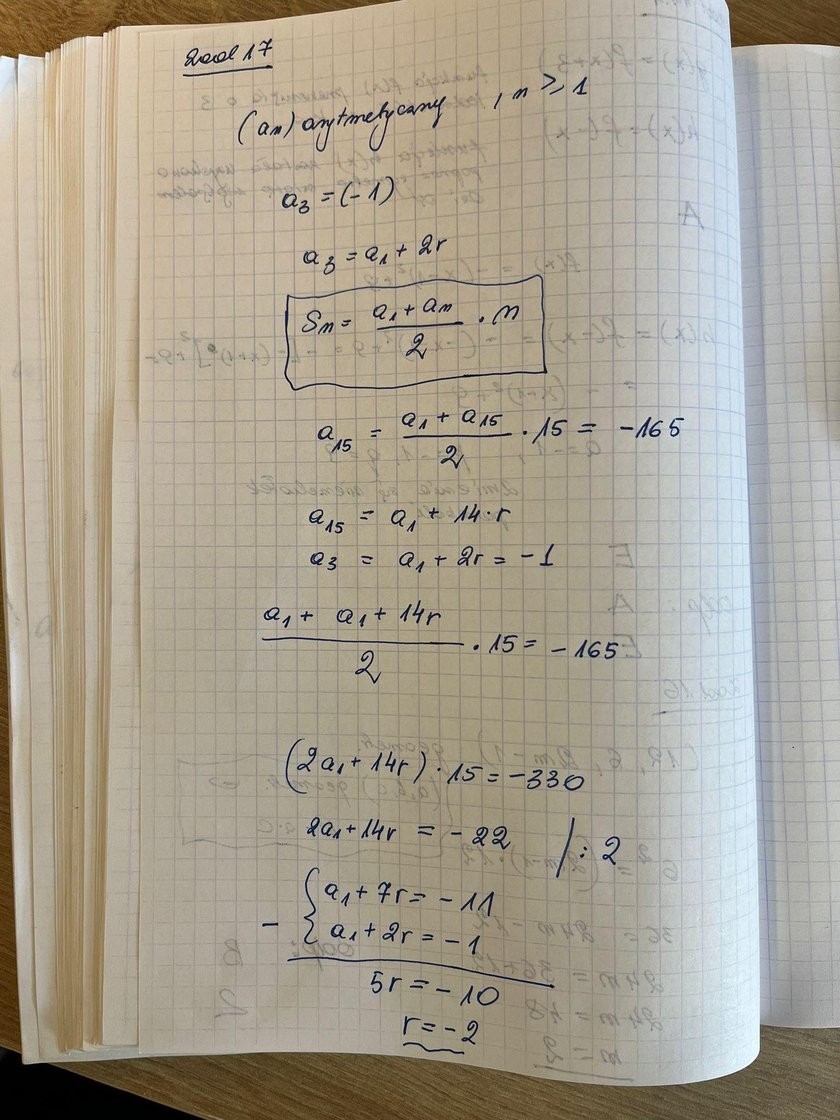 zad 17
(an) arytmetyczny , n ≥ 1
a₃ = (-1)
a₃ = a₁ + 2r
Sₙ = \frac{a₁ + aₙ}{2} · n
a₁₅ = \frac{a₁ + a₁₅}{2} · 15 = -165
a₁₅ = a₁ + 14·r
a₃ = a₁ + 2r = -1
\frac{a₁ + a₁ + 14r}{2} · 15 = -165
(2a₁ + 14r) · 15 = -330
2a₁ + 14r = -22 / : 2
- { a₁ + 7r = -11
a₁ + 2r = -1
5r = -10
r = -2